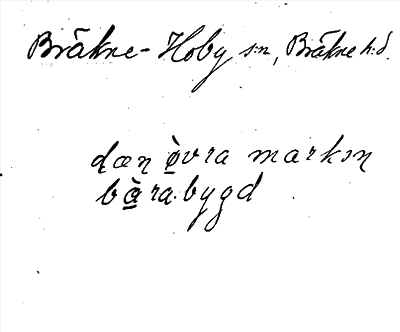 Bräkne-Hoby s:n, Bräkne h:d.
dæn ø̀vra markɔn
bà̱ra bygd